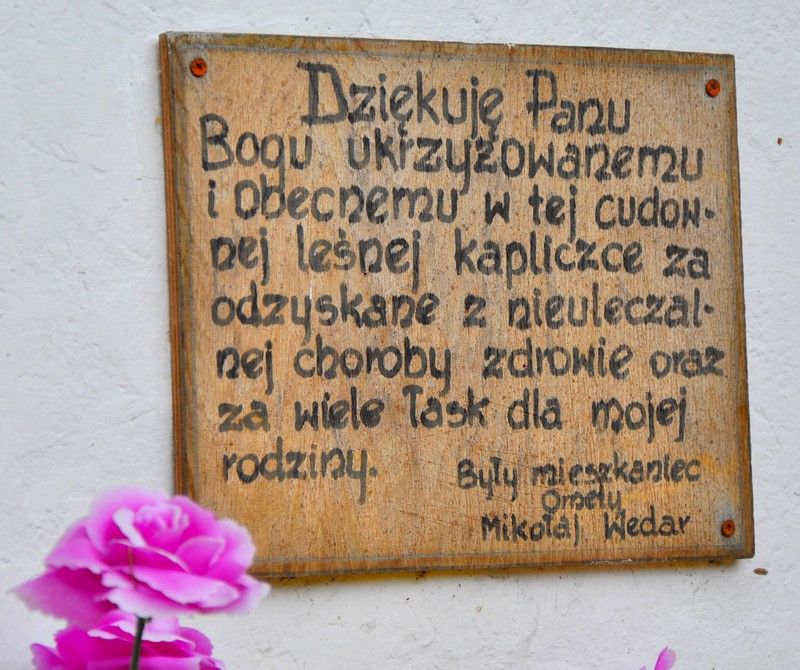 Dziękuję Panu
Bogu ukrzyżowanemu
i obecnemu w tej cudow-
nej leśnej kapliczce za
odzyskane z nieuleczal-
nej choroby zdrowie oraz
za wiele łask dla mojej
rodziny.
Były mieszkaniec
Omely
Mikołaj Wedar